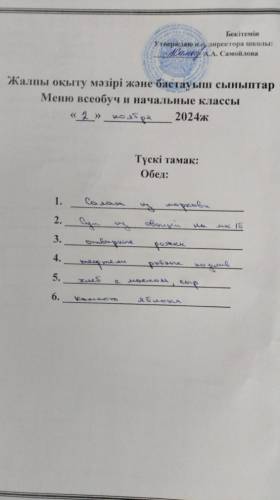 Бекітемін
Утверждаю и.о. директора школы:
А.А. Самойлова
Жалпы оқыту мәзірі және бастауыш сыныптар
Меню всеобуч и начальные классы
« 2 » ноября 2024ж
Түскі тамак:
Обед:
1. Салат из моркови
2. Суп из овощей на мк/б
3. отварные рожки
4. тефтели рыбные подлив
5. хлеб с маслом, сыр
6. компот яблоки